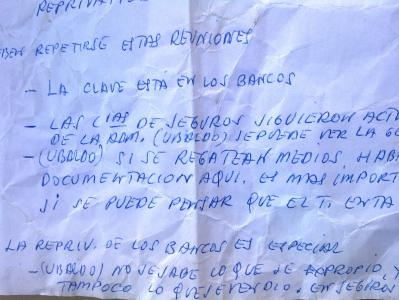 REPRIVATI
DEBEN REPETIRSE ESTAS REUNIONES
- LA CLAVE ESTA EN LOS BANCOS
- LAS CIAS DE SEGUROS SIGUIERON ACTU
DE LA ADM. (UBALDO) SE PUEDE VER LA GE
- (UBALDO) SI SE REGATEAN MEDIOS, HAB
DOCUMENTACION AQUI. ES MAS IMPORT
SI SE PUEDE PENSAR QUE EL T. ENTA
LA REPRIV. DE LOS BANCOS ES ESPECIAL
- (UBALDO) NO SE SABE LO QUE SE EXPROPIO, Y
TAMPOCO LO QUE SE VENDIO. EN SEGUROS